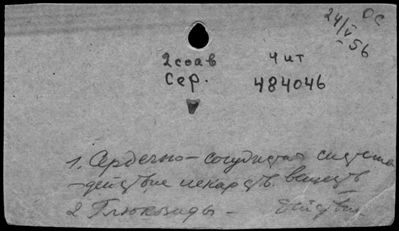 ОС
24/V-56
2 соав чит
Сер. 484046
1. Сердечно-сосудистая система
- действие лекарств. веществ
2 Глюкозиды - действие